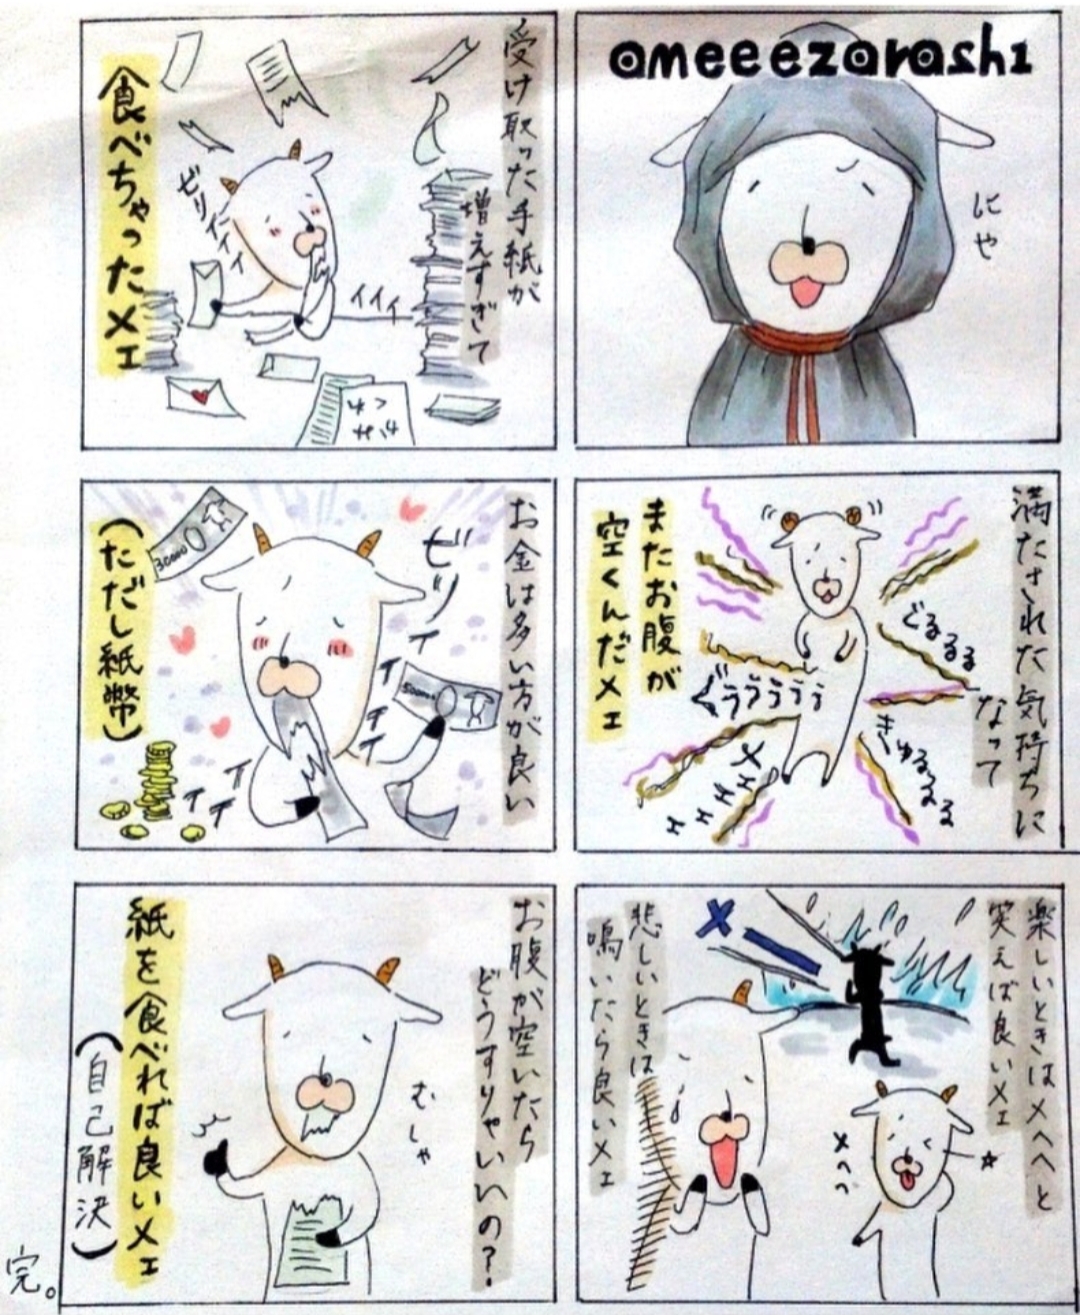 ameeezarashi
にや
受け取った手紙が
増えすぎて
ビリィイィ
イイィ
食べちゃったメェ
満たされた気持ちに
なって
ぐるるる
ぐぅぅぅぅぅ
きゅるるる
メェェェェ
またお腹が
空くんだメェ
お金は多い方が良い
ビリイイイイイ
イイイ
30000
50000
(ただし紙幣)
楽しいときはメヘヘと
笑えば良いメェ
メヘヘ
悲しいときは
鳴いたら良いメェ
お腹が空いたら
どうすりゃいいの?
むしゃ
紙を食べれば良いメェ
(自己解決)
完。